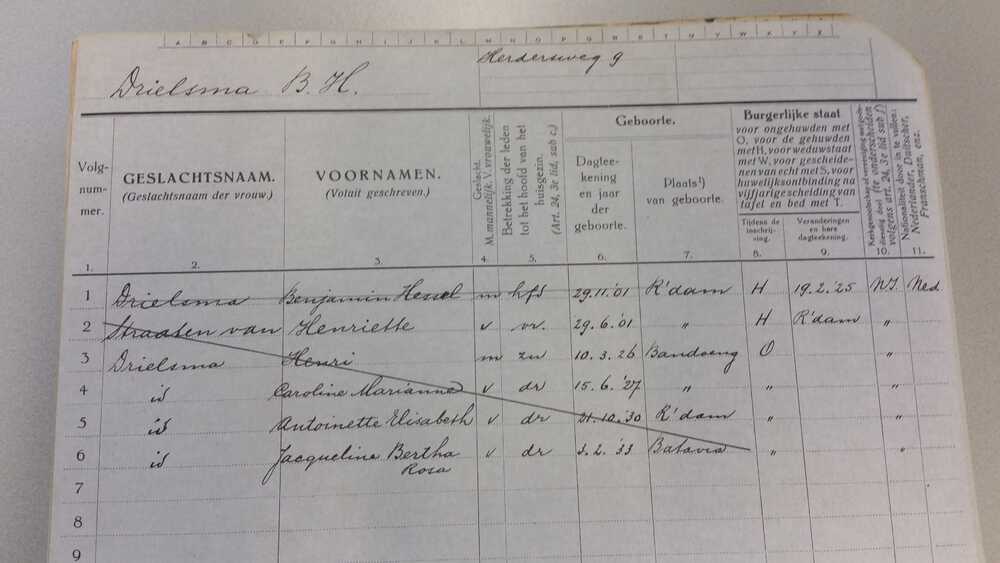 A B C D E F G H I J K L M N O P Q R S T U V W X Y Z
Herdersweg 9
Drielsma B. H.
Volg-
num-
mer.
GESLACHTSNAAM.
(Geslachtsnaam der vrouw.)
VOORNAMEN.
(Voluit geschreven.)
Geslacht.
M. mannelijk. V. vrouwelijk.
Betrekking der leden
tot het hoofd van het
huisgezin.
(Art. 24, 3e lid, sub c.)
Geboorte.
Dagtee-
kening
en jaar
der
geboorte.
Plaats¹)
van geboorte.
Burgerlijke staat
voor ongehuwden met
O, voor de gehuwden
met H, voor weduwstaat
met W, voor gescheide-
nen van echt met S, voor
huwelijksontbinding na
vijfjarige scheiding van
tafel en bed met T.
Tijdens de
inschrij-
ving.
Veranderingen
en hare
dagteekening.
Kerkgenootschap of vereeniging met godsdienstig doel (te onderscheiden
volgens art. 24, 3e lid sub f)
Nationaliteit door in te vullen:
Nederlander, Duitscher,
Franschman, enz.
1. 2. 3. 4. 5. 6. 7. 8. 9. 10. 11.
1 Drielsma Benjamin Hessel m hfd 29.11.'01 R'dam H 19.2.'25 N.I. Ned
2 Straaten van Henriette v vr. 29.6.'01 " H R'dam "
3 Drielsma Henri m zn 10.3.26 Bandoeng O "
4 id Caroline Marianne v dr 15.6.'27 " " "
5 id Antoinette Elisabeth v dr 21.10.'30 R'dam " "
6 id Jacqueline Bertha v dr 3.2.'33 Batavia " "
Rosa
7
8
9